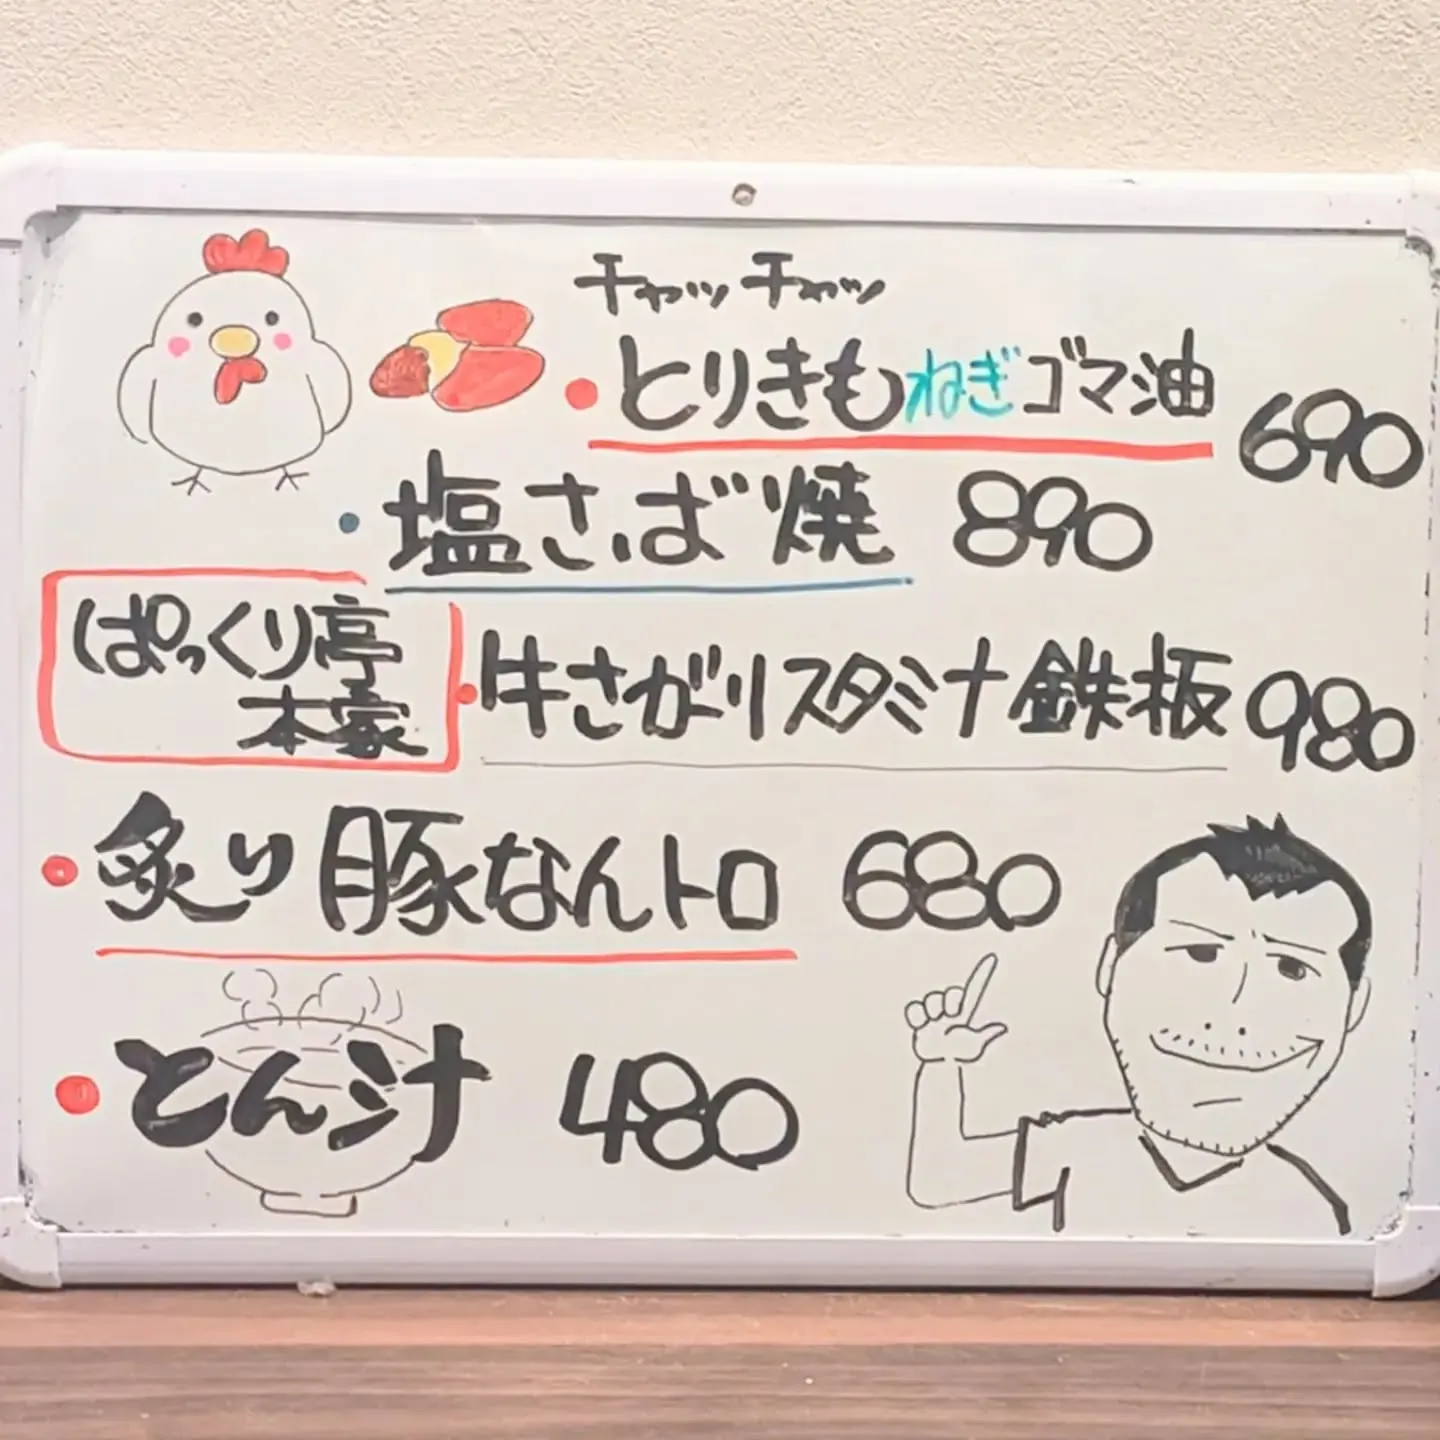 チャッチャッ
とりきもねぎゴマ油 690
塩さば焼 890
ぱっくり亭
本家
牛さがりスタミナ鉄板 980
炙り豚なんトロ 680
とん汁 480